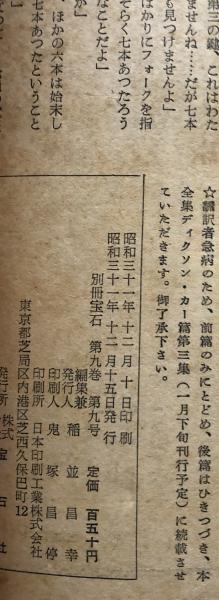 第三の鍵、これはわた
ませんね……だが七本
も見つけませんよ」
ばかりにフォークを指
そらく七本あつたろう
なことだよ」
か」
、ほかの六本は始末し
七本あつたということ
☆譯訳者急病のため、前篇のみにとどめ、後篇はひきつづき、本
全集ディクソン・カー篇第三集(一月下旬刊行予定)に続載させ
ていただきます。御了承下さい。
昭和三十一年十二月十日印刷
昭和三十一年十二月十五日発行
別冊宝石 第九巻 第九号 定価 百五十円
編集兼
発行人 稲並昌幸
印刷人 鬼塚昌停
印刷所 日本印刷工業株式会社
東京都芝局区内港区芝西久保巴町12
発行所 株式 宝石社